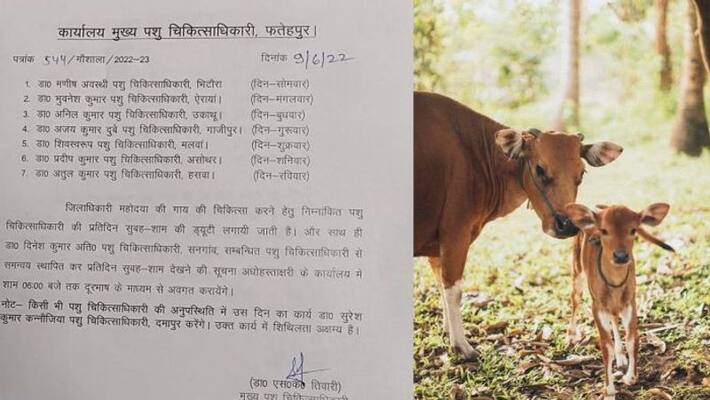 कार्यालय मुख्य पशु चिकित्साधिकारी, फतेहपुर।
पत्रांक 544/गौशाला/2022-23 दिनांक 9/6/22
1. डा0 मनीष अवस्थी पशु चिकित्साधिकारी, भिटौरा (दिन–सोमवार)
2. डा0 भुवनेश कुमार पशु चिकित्साधिकारी, ऐरायां। (दिन–मंगलवार)
3. डा0 अनिल कुमार पशु चिकित्साधिकारी, उकाथू। (दिन–बुधवार)
4. डा0 अजय कुमार दुबे पशु चिकित्साधिकारी, गाजीपुर। (दिन–गुरूवार)
5. डा0 शिवस्वरूप पशु चिकित्साधिकारी, मलवां। (दिन–शुक्रवार)
6. डा0 प्रदीप कुमार पशु चिकित्साधिकारी, असोथर। (दिन–शनिवार)
7. डा0 अतुल कुमार पशु चिकित्साधिकारी, हसवा। (दिन–रविवार)
जिलाधिकारी महोदया की गाय की चिकित्सा करने हेतु निम्नांकित पशु
चिकित्साधिकारी की प्रतिदिन सुबह-शाम की ड्यूटी लगायी जाती है। और साथ ही
डा0 दिनेश कुमार अति0 पशु चिकित्साधिकारी, सनगांव, सम्बन्धित पशु चिकित्साधिकारी से
समन्वय स्थापित कर प्रतिदिन सुबह-शाम देखने की सूचना अधोहस्ताक्षरी के कार्यालय में
शाम 06:00 बजे तक दूरभाष के माध्यम से अवगत करायेंगे।
नोट– किसी भी पशु चिकित्साधिकारी की अनुपस्थिति में उस दिन का कार्य डा0 सुरेश
कुमार कन्नौजिया पशु चिकित्साधिकारी, दमापुर करेंगे। उक्त कार्य में शिथिलता अक्षम्य है।
(डा0 एस0के0 तिवारी)
मुख्य पशु चिकित्साधिकारी